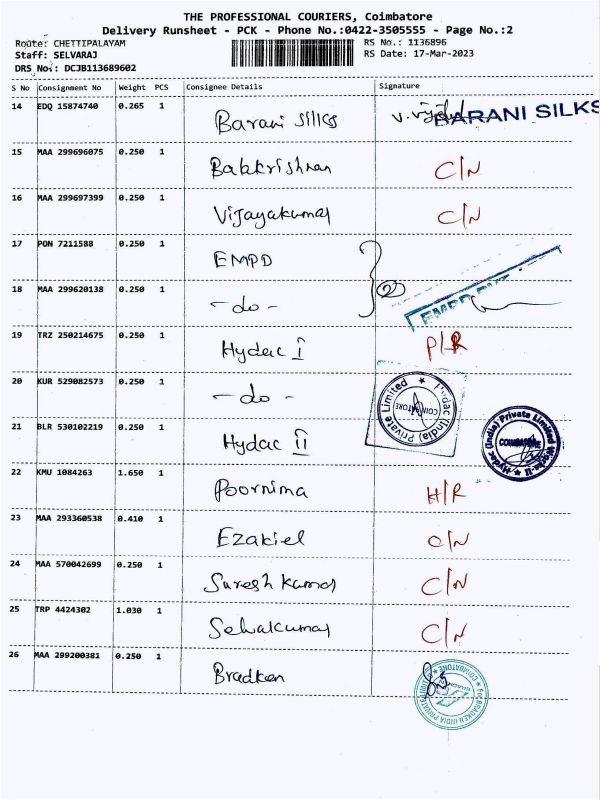 THE PROFESSIONAL COURIERS, Coimbatore
Delivery Runsheet - PCK - Phone No.:0422-3505555 - Page No.:2
Route: CHETTIPALAYAM RS No.: 1136896
Staff: SELVARAJ RS Date: 17-Mar-2023
DRS No.: DCJB113689602
S No Consignment No Weight PCS Consignee Details Signature
14 EDQ 15874740 0.265 1 Barani silks BARANI SILKS
15 MAA 299696075 0.250 1 Balakrishnan C/N
16 MAA 299697399 0.250 1 Vijayakumar C/N
17 PON 7211588 0.250 1 EMPD
18 MAA 299620138 0.250 1 -do- EMPD
19 TRZ 250214675 0.250 1 Hydac I P/R
20 KUR 529082573 0.250 1 -do- Hydac (India) Private Limited COIMBATORE
21 BLR 530102219 0.250 1 Hydac II Hydac (India) Private Limited COIMBATORE
22 KMU 1084263 1.650 1 Poornima H/R
23 MAA 293360538 0.410 1 Ezakiel C/N
24 MAA 570042699 0.250 1 Suresh Kumar C/N
25 TRP 4424302 1.030 1 Selvakumar C/N
26 MAA 299200381 0.250 1 Bradken For BRADKEN INDIA PRIVATE COIMBATORE